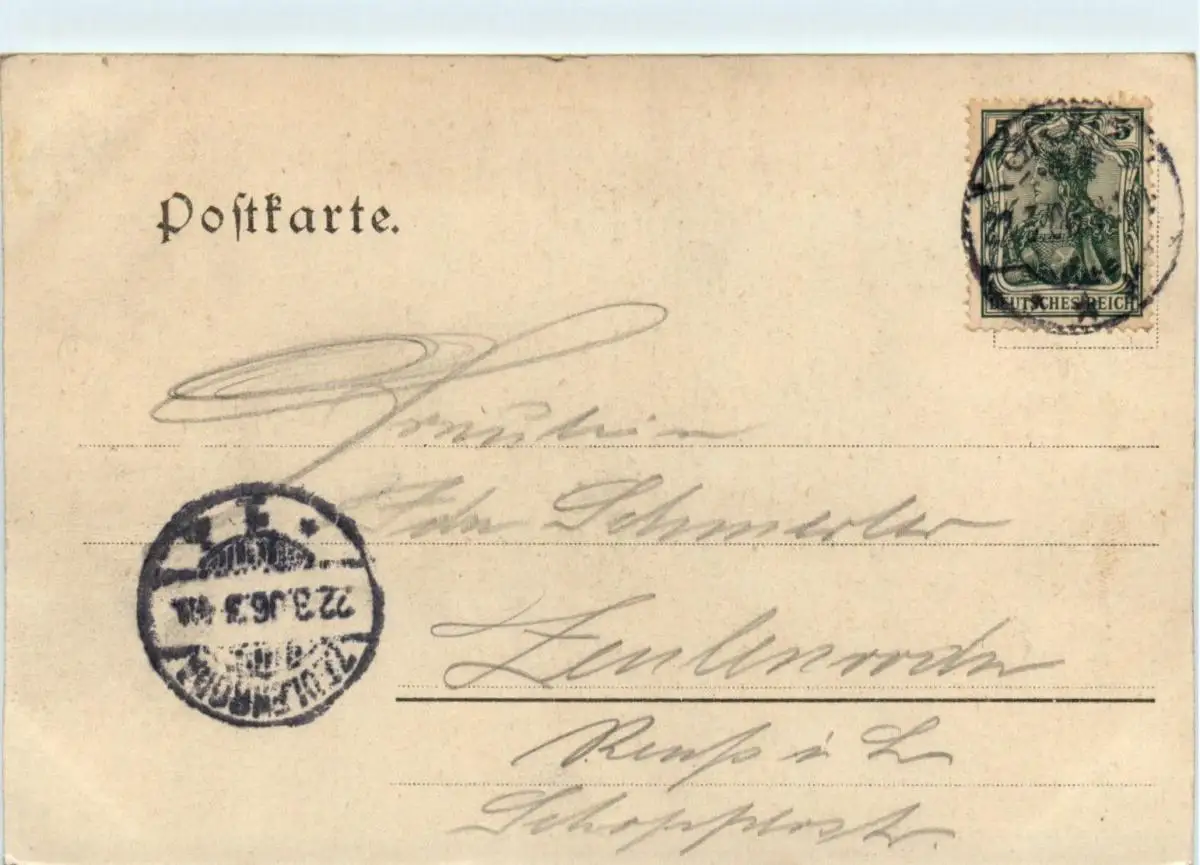 5 5
DEUTSCHES REICH
Postkarte.
Fräulein
Ida Schmerler
Zeulenroda
Reuß i L
22.3.06.3-4N.
ZEULENRODA